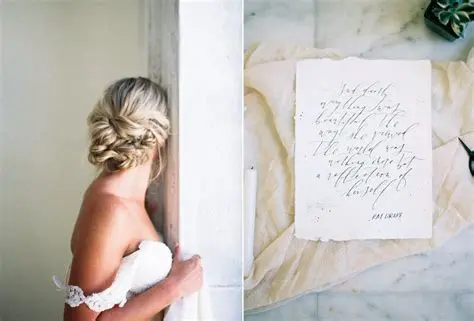 And
anything was
beautiful. The
way she viewed
the world was
nothing more but
a reflection of
herself.